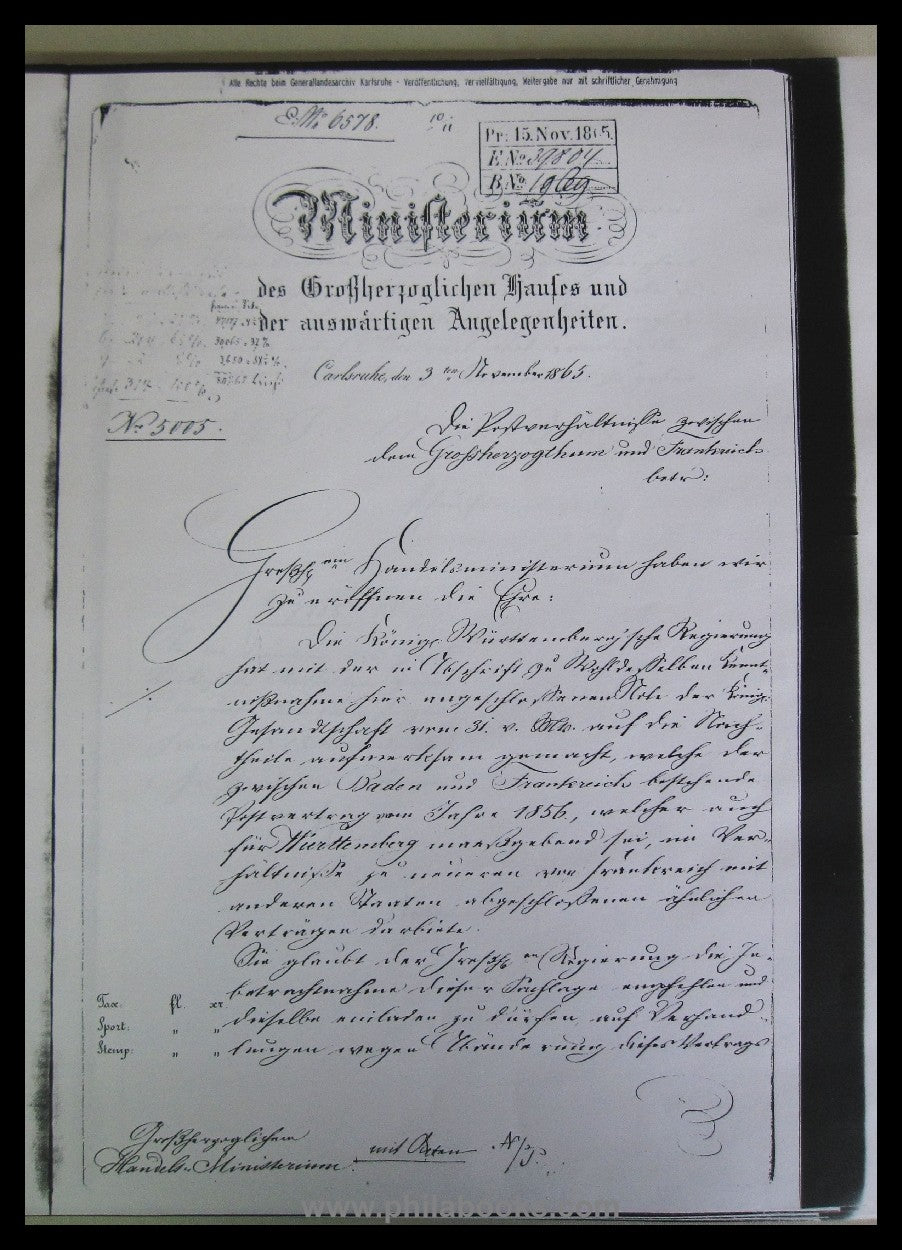 Alle Rechte beim Generallandesarchiv Karlsruhe - Veröffentlichung, Vervielfältigung, Weitergabe nur mit schriftlicher Genehmigung
E. No 6578.
Pr: 15. Nov. 1865.
E. No. 39804
B. No.
Ministerium
des Großherzoglichen Hauses und
der auswärtigen Angelegenheiten.
Carlsruhe, den 3ten November 1865.
No 5005.
Die Postverhältnisse zwischen
dem Grossherzogthum und Frankreich
betr:
Großhem Handelsministerium haben wir
zu eröffnen die Ehre:
Die Königl. Württemberg'sche Regierung
hat mit der in Abschrift zu Wohldesselben Kennt-
nißnahme hier angeschlossenen Note der Königl.
Gesandtschaft vom 31. v. Mts. auf die Nach-
theile aufmerksam gemacht, welche der
zwischen Baden und Frankreich bestehende
Postvertrag vom Jahre 1856, welcher auch
für Württemberg maaßgebend sei, im Ver-
hältnisse zu neueren von Frankreich mit
anderen Staaten abgeschloßenen ähnlichen
Verträgen darbiete.
Sie glaubt der Großhen Regierung die In-
betrachtnahme dieser Sachlage empfehlen und
dieselbe einladen zu dürfen, auf Verhand-
lungen wegen Abänderung dieses Vertrags
Tax: fl. xr.
Sport: " "
Stemp: " "
Großherzoglichem
Handels-Ministerium.
mit Akten
www.philabooks.com